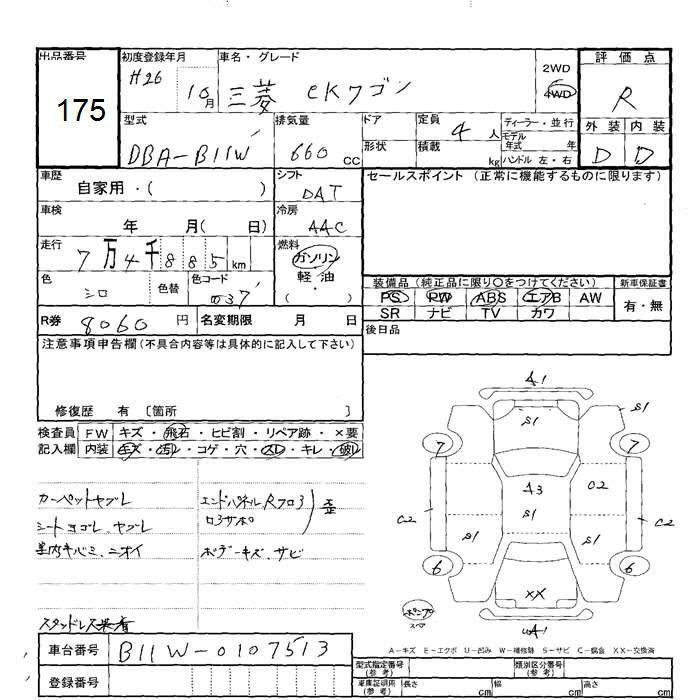 出品番号 初度登録年月 車名・グレード 評価点
175 H26 10月 三菱 eKワゴン 2WD 4WD R
型式 排気量 ドア 定員 ディーラー・並行 外装 内装
DBA-B11W 660 CC 形状 積載 4人 kg モデル年式 年 ハンドル 左・右 D D
車歴 自家用・( ) シフト DAT セールスポイント (正常に機能するものに限ります)
車検 年 月( 日) 冷房 AAC
走行 7万4千885km 燃料 ガソリン 軽・油 ( )
色 シロ 色替 色コード W37
装備品 (純正品に限り○をつけてください) 新車保証書
PS PW ABS エアB AW 有・無
SR ナビ TV カワ
R券 8060円 名変期限 月 日 後日品
注意事項申告欄(不具合内容等は具体的に記入して下さい)
修復歴 有 〔箇所 〕
検査員 FW キズ・飛石・ヒビ割・リペア跡・×要
記入欄 内装 キズ・汚レ・コゲ・穴・スレ・キレ・破レ
カーペットヤブレ エンドパネル、Rフロ3 歪
シートヨゴレ、ヤブレ ロ3サポ
室内キバミ、ニオイ ボデーキズ、サビ
スタッドレス装着
A1
S1 S1
7 7
A3 C2
S1
C2 S1 S1 C2
6 6
XX
UA1
ポニプラ
スペア
A-キズ E-エクボ U-凹み W-補修跡 S-サビ C-腐食 XX-交換済
車台番号 B11W-0107513
登録番号
型式指定番号 (参考) 類別区分番号 (参考)
車庫証明用 (参考) 長さ cm 幅 cm 高さ cm